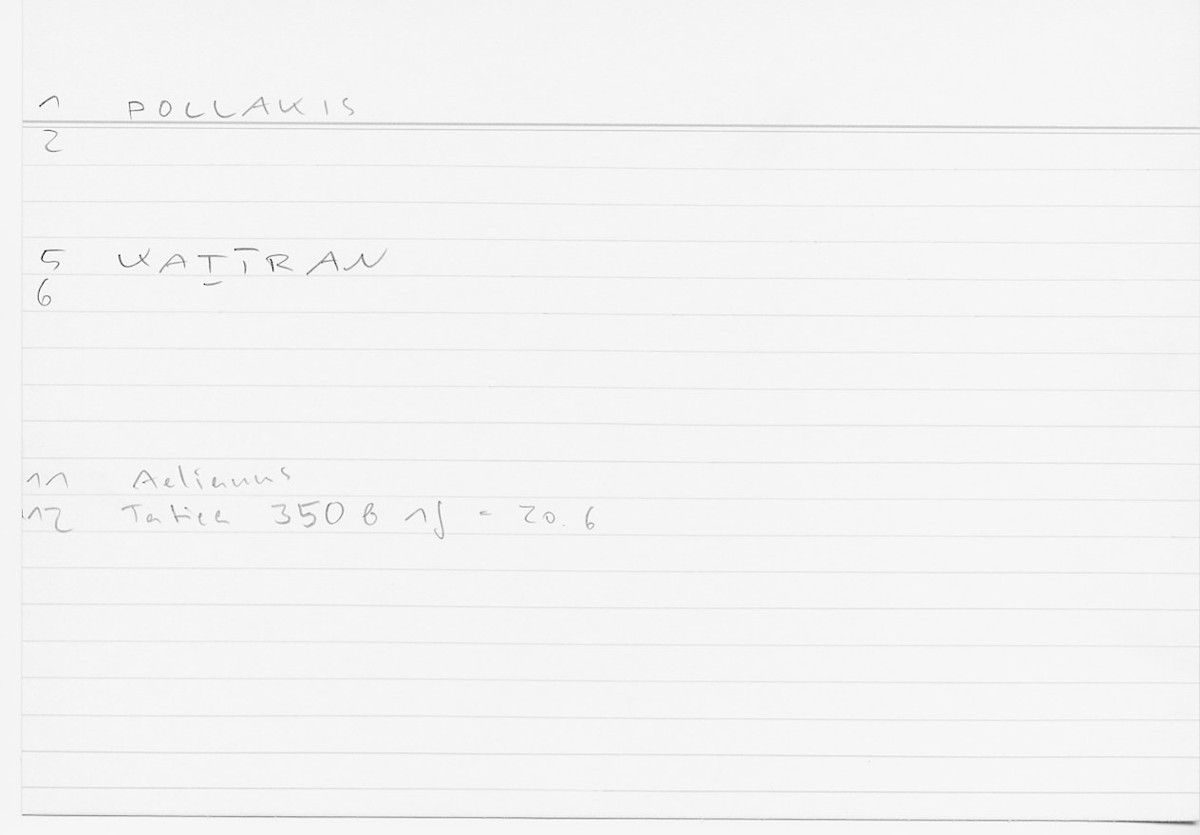 1 POLLAKIS
2
5 KAṬṬRAN
6
11 Aelianus
12 350 B 1f = 20.6